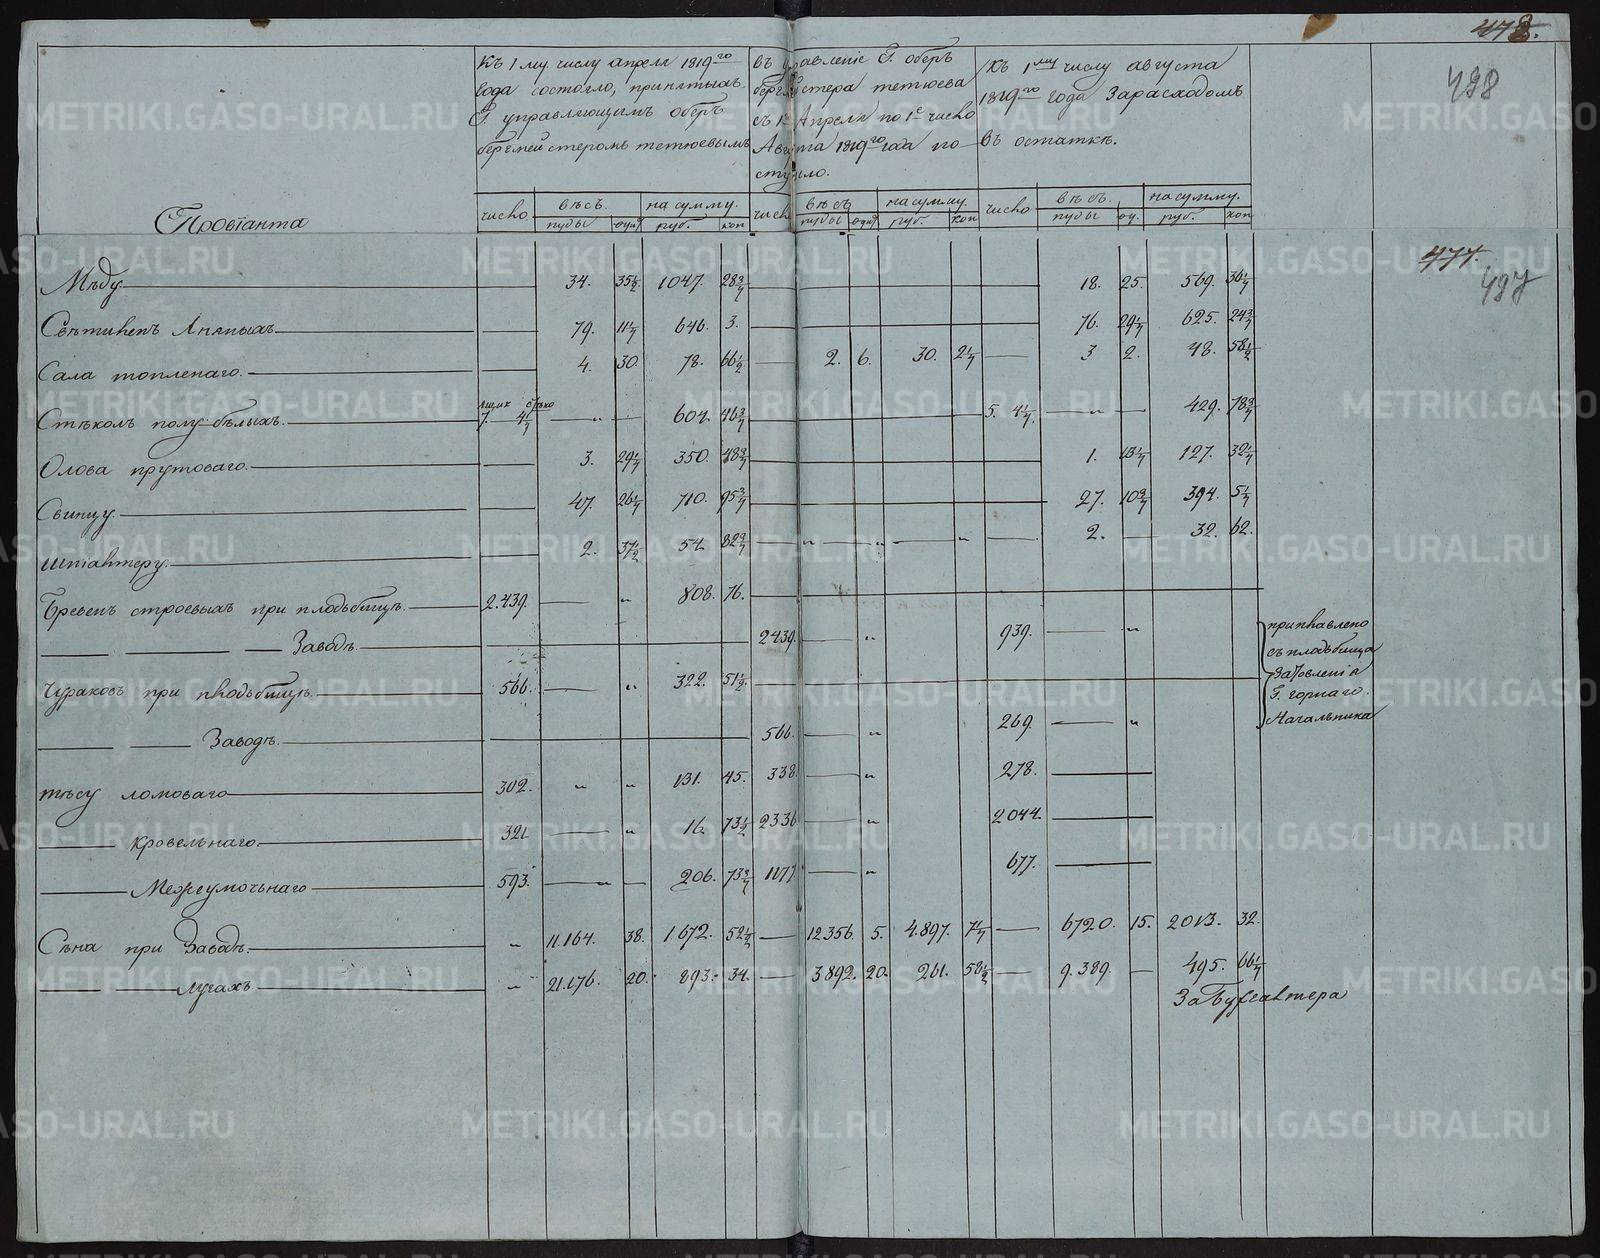 478.
498
Къ 1му числу апреля 1819го
года состояло, принятыхъ
Г. управляющимъ оберъ
бергмейстеромъ тетюевымъ
въ управленіе Г. оберъ
бергмейстера тетюева
съ 1го Апреля по 1е число
Августа 1819го года по
ступило.
Къ 1му числу августа
1819го года Зарасходомъ
въ остаткѣ.
Провіанта
число вѣсъ. на сумму. число вѣсъ на сумму. число вѣсъ. на сумму.
пуды фун руб. коп пуды фун руб. коп пуды фу. руб. коп
477.
497
Мѣду 34. 35½ 1047. 28 3/7 18. 25. 569. 36 1/7
Свѣтиленъ Льняныхъ 79. 11 1/7 646. 3. 76. 29 1/7 625. 24 3/7
Сала топленаго. 4. 30. 78. 66½ 2. 6. 30. 2 1/7 3 2. 48. 58½
Стѣколъ полубѣлыхъ. ящик 7. 4 1/7 „ 604. 46 3/7 5. 4 1/7. „ 429. 78 3/7
Олова прутоваго. 3. 29 1/7 350. 48 3/7 1. 13 1/7 127. 32 1/7
Свинцу. 47. 26 1/7 710. 95 3/7 27. 10 3/7 394. 5 1/7
шпіавтеру. 2. 37½ 54. 82 3/7 „ „ „ 2. 32. 62.
Бревенъ строевыхъ при плодбищѣ. 2.439. „ 808. 76.
Заводѣ. 2439. „ 939. „
Чураковъ при плодбищѣ. 566. „ 322. 51½.
Заводѣ. 566. „ 269. „
приплавлено
съ плодбища
Г. горнаго
Начальника
тѣсу ломоваго 302. „ „ 131. 45. 338. „ 278.
кровельнаго. 321 „ 16. 73½ 2336 „ 2044.
Межеумочьнаго 593. „ 206. 73 3/7 1177 „ 677.
Сѣна при Заводѣ. „ 11.164. 38. 1.672. 52½ 12356. 5. 4.897. 7 1/7 6720. 15. 2013. 32.
лугахъ „ 21.176. 20. 893. 34. 3892. 20. 261. 58½ 9.389. 495. 66 1/7
За Бухгалтера
METRIKI.GASO-URAL.RU